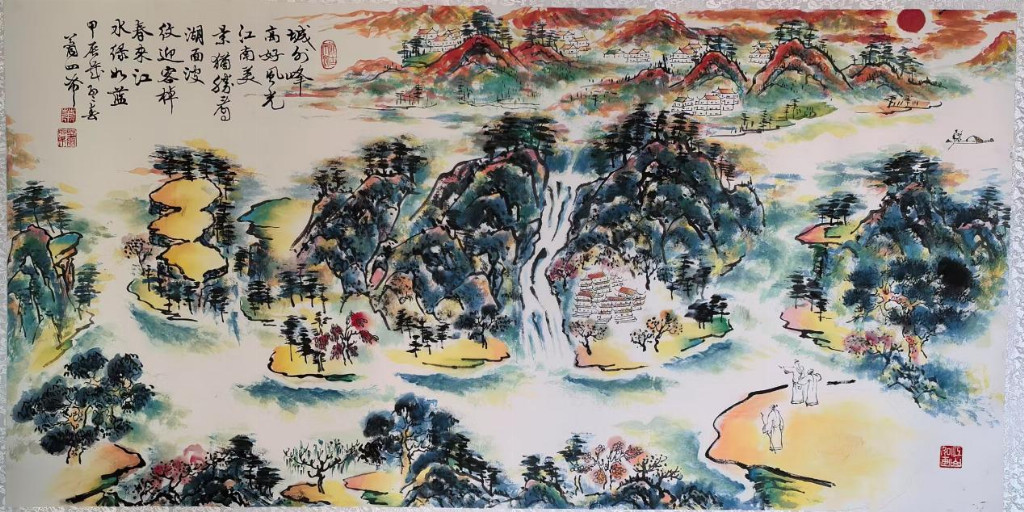 城外峰
高好风光
江南美
景猶勝看
湖面波
纹迎客棹
春来江
水绿如蓝
甲辰歲
江山如画